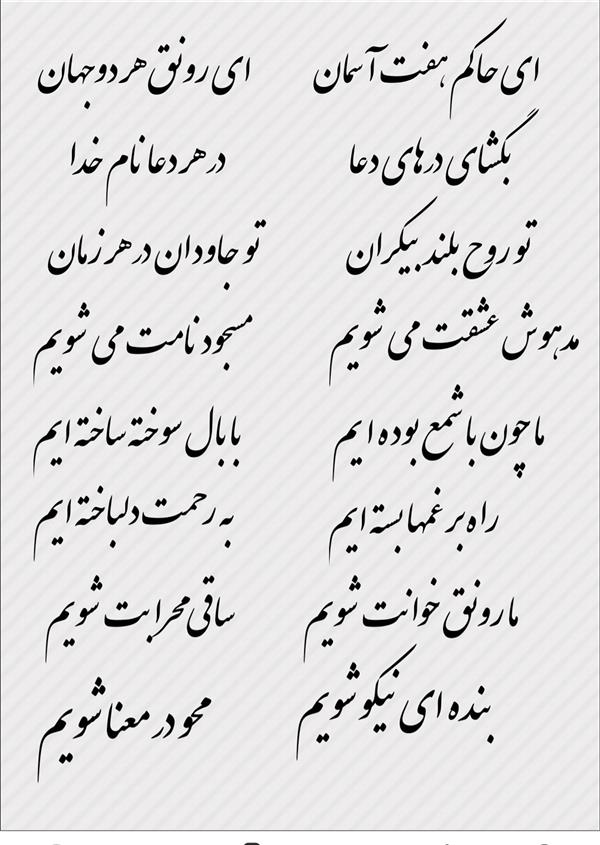 ای حاکم هفت آسمان ای رونق هر دو جهان
بگشای درهای دعا در هر دعا نام خدا
تو روح بلند بیکران تو جاودان در هر زمان
مدهوش عشقت می شویم مسجود نامت می شویم
ما چون با شمع بوده ایم با بال سوخته ساخته ایم
راه بر غمها بسته ایم به رحمت دلباخته ایم
ما رونق خوانت شویم ساقی محرابت شویم
بنده ای نیکو شویم محو در معنا شویم